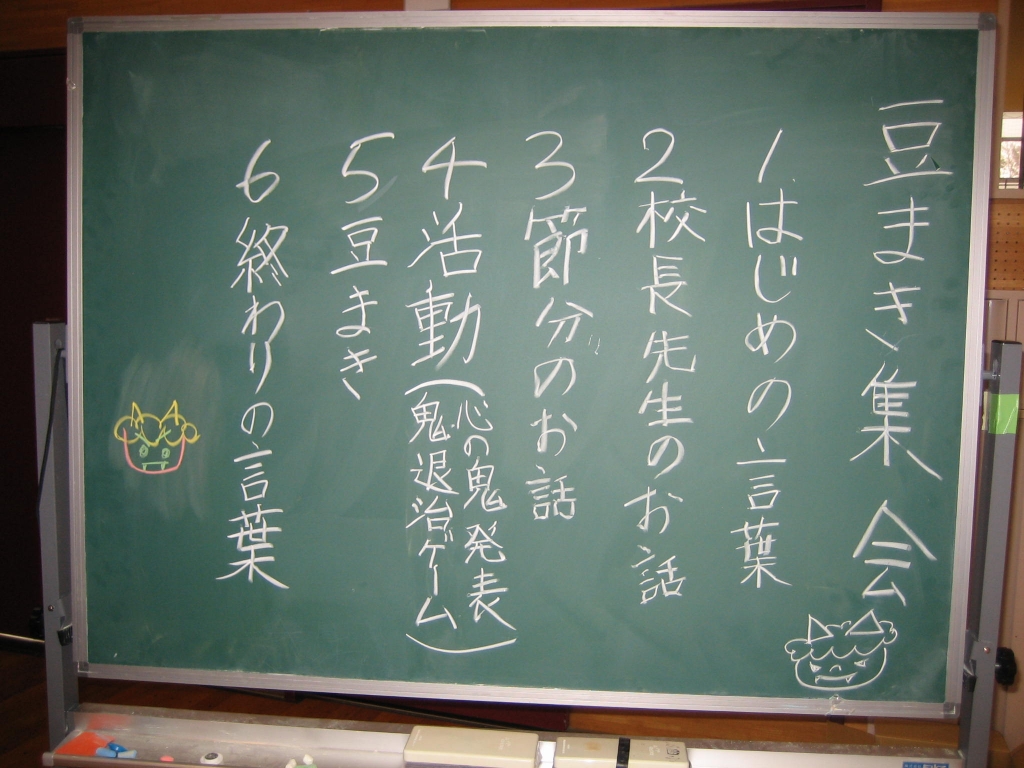 豆まき集会
1.はじめの言葉
2校長先生のお話
3節分のお話
4活動(心の鬼発表
鬼退治ゲーム)
5豆まき
6終わりの言葉